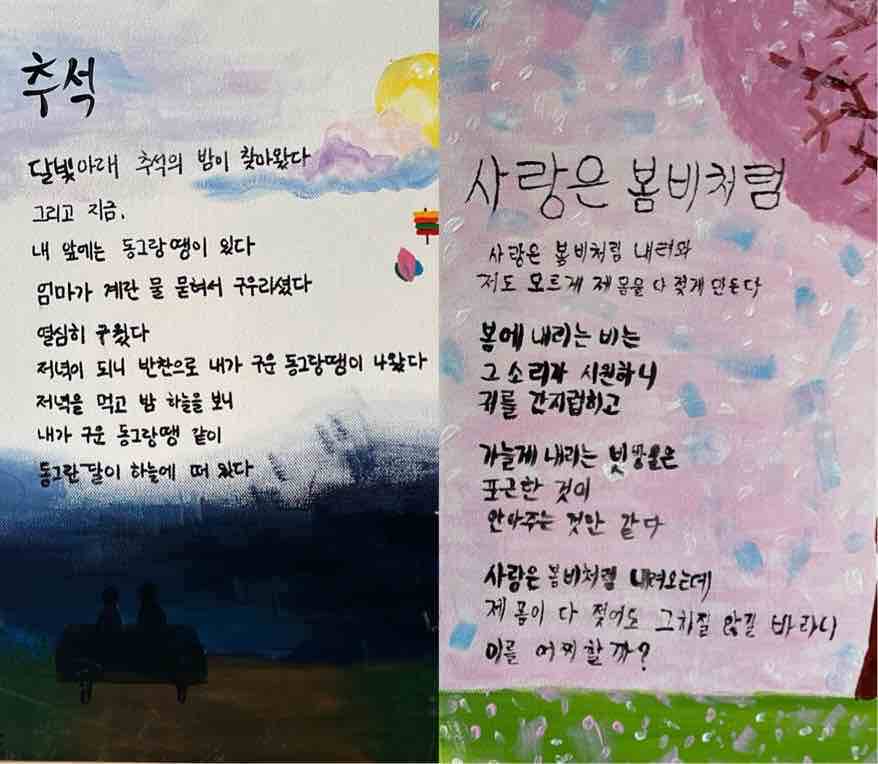 추석
달빛아래 추석의 밤이 찾아왔다
그리고 지금,
내 앞에는 동그랑땡이 있다
엄마가 계란 물 묻혀서 구우라셨다
열심히 구웠다
저녁이 되니 반찬으로 내가 구운 동그랑땡이 나왔다
저녁을 먹고 밤 하늘을 보니
내가 구운 동그랑땡 같이
동그란 달이 하늘에 떠 있다
사랑은 봄비처럼
사랑은 봄비처럼 내려와
저도 모르게 제 몸을 다 젖게 만든다
봄에 내리는 비는
그 소리가 시원하니
귀를 간지럽히고
가늘게 내리는 빗방울은
포근한 것이
안아주는 것만 같다
사랑은 봄비처럼 내려오는데
제 몸이 다 젖어도 그치질 않길 바라니
이를 어찌할까?